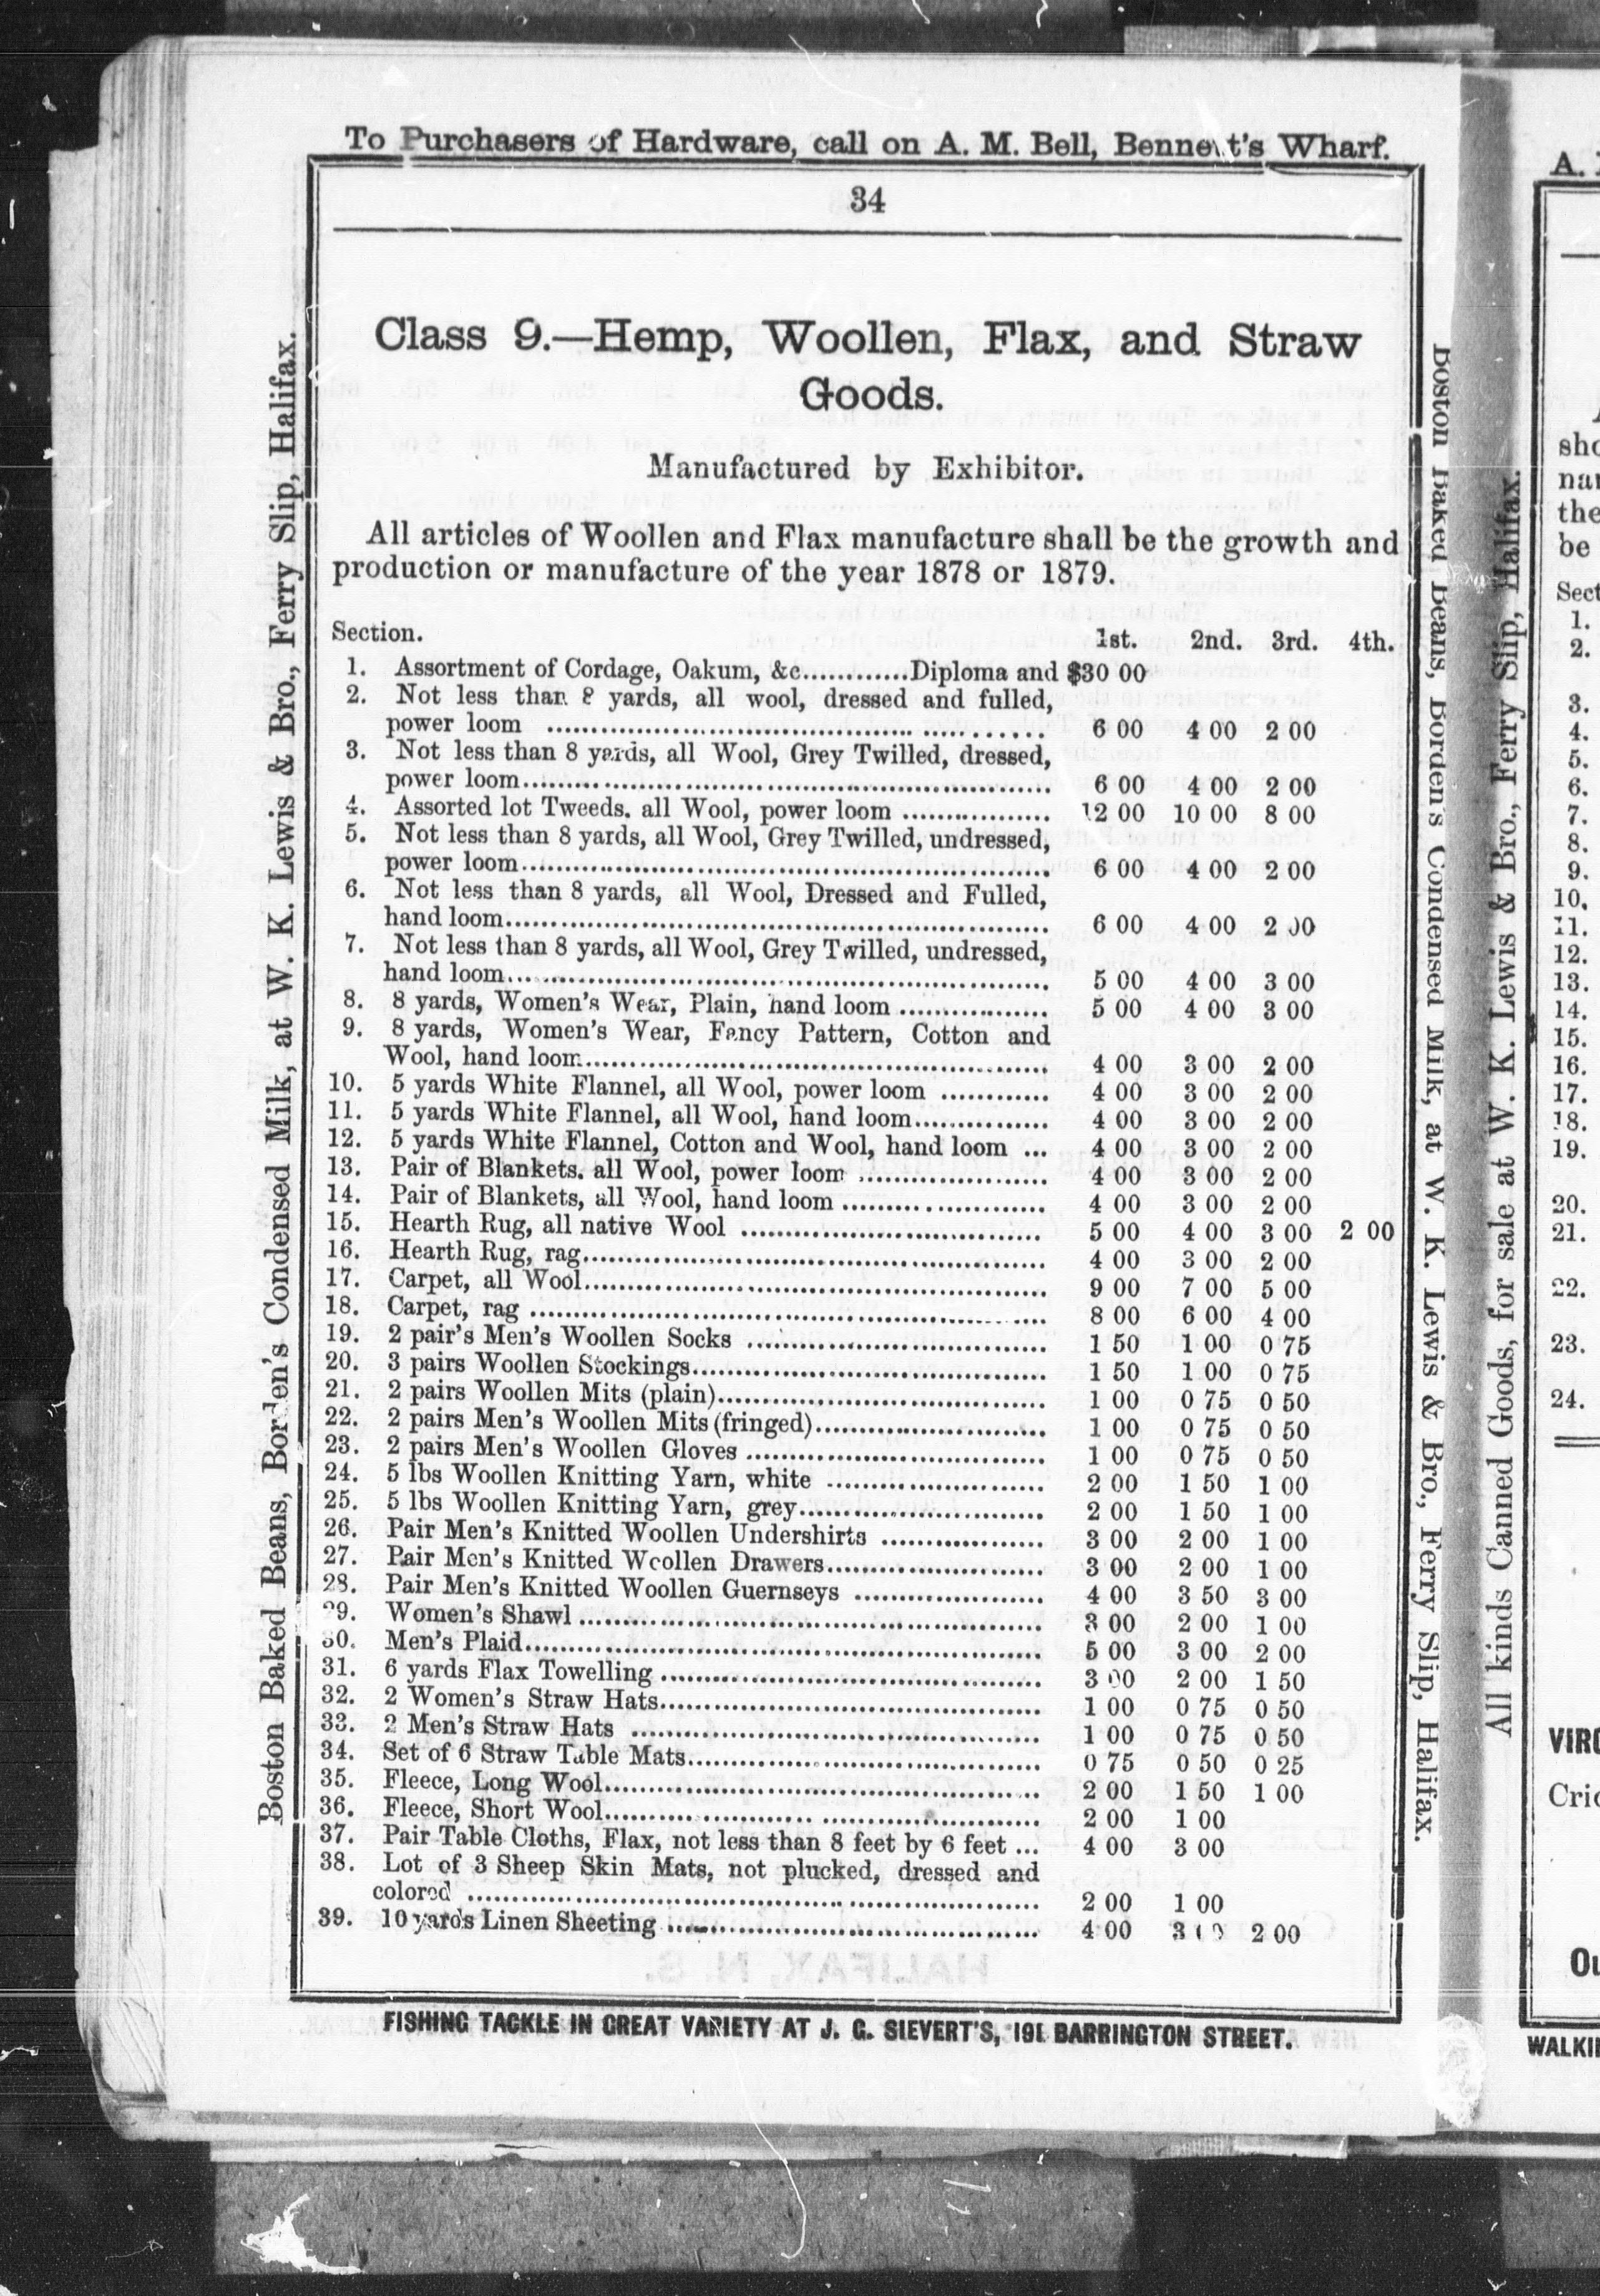 To Purchasers of Hardware, call on A. M. Bell, Bennett's Wharf.
34
Class 9.—Hemp, Woollen, Flax, and Straw
Goods.
Manufactured by Exhibitor.
All articles of Woollen and Flax manufacture shall be the growth and
production or manufacture of the year 1878 or 1879.
Section. 1st. 2nd. 3rd. 4th.
1. Assortment of Cordage, Oakum, &c............Diploma and $30 00
2. Not less than 8 yards, all wool, dressed and fulled,
power loom ........ 6 00 4 00 2 00
3. Not less than 8 yards, all Wool, Grey Twilled, dressed,
power loom........ 6 00 4 00 2 00
4. Assorted lot Tweeds. all Wool, power loom ........ 12 00 10 00 8 00
5. Not less than 8 yards, all Wool, Grey Twilled, undressed,
power loom........ 6 00 4 00 2 00
6. Not less than 8 yards, all Wool, Dressed and Fulled,
hand loom........ 6 00 4 00 2 00
7. Not less than 8 yards, all Wool, Grey Twilled, undressed,
hand loom........ 5 00 4 00 3 00
8. 8 yards, Women's Wear, Plain, hand loom ........ 5 00 4 00 3 00
9. 8 yards, Women's Wear, Fancy Pattern, Cotton and
Wool, hand loom........ 4 00 3 00 2 00
10. 5 yards White Flannel, all Wool, power loom ........ 4 00 3 00 2 00
11. 5 yards White Flannel, all Wool, hand loom........ 4 00 3 00 2 00
12. 5 yards White Flannel, Cotton and Wool, hand loom ... 4 00 3 00 2 00
13. Pair of Blankets. all Wool, power loom ........ 4 00 3 00 2 00
14. Pair of Blankets, all Wool, hand loom ........ 4 00 3 00 2 00
15. Hearth Rug, all native Wool ........ 5 00 4 00 3 00 2 00
16. Hearth Rug, rag........ 4 00 3 00 2 00
17. Carpet, all Wool........ 9 00 7 00 5 00
18. Carpet, rag ........ 8 00 6 00 4 00
19. 2 pair's Men's Woollen Socks ........ 1 50 1 00 0 75
20. 3 pairs Woollen Stockings........ 1 50 1 00 0 75
21. 2 pairs Woollen Mits (plain)........ 1 00 0 75 0 50
22. 2 pairs Men's Woollen Mits (fringed)........ 1 00 0 75 0 50
23. 2 pairs Men's Woollen Gloves ........ 1 00 0 75 0 50
24. 5 lbs Woollen Knitting Yarn, white ........ 2 00 1 50 1 00
25. 5 lbs Woollen Knitting Yarn, grey........ 2 00 1 50 1 00
26. Pair Men's Knitted Woollen Undershirts ........ 3 00 2 00 1 00
27. Pair Men's Knitted Woollen Drawers........ 3 00 2 00 1 00
28. Pair Men's Knitted Woollen Guernseys ........ 4 00 3 50 3 00
29. Women's Shawl ........ 3 00 2 00 1 00
30. Men's Plaid........ 5 00 3 00 2 00
31. 6 yards Flax Towelling ........ 3 00 2 00 1 50
32. 2 Women's Straw Hats........ 1 00 0 75 0 50
33. 2 Men's Straw Hats ........ 1 00 0 75 0 50
34. Set of 6 Straw Table Mats........ 0 75 0 50 0 25
35. Fleece, Long Wool........ 2 00 1 50 1 00
36. Fleece, Short Wool........ 2 00 1 00
37. Pair Table Cloths, Flax, not less than 8 feet by 6 feet ... 4 00 3 00
38. Lot of 3 Sheep Skin Mats, not plucked, dressed and
colored ........ 2 00 1 00
39. 10 yards Linen Sheeting ........ 4 00 3 00 2 00
FISHING TACKLE IN GREAT VARIETY AT J. G. SIEVERT'S, 191 BARRINGTON STREET.
Boston Baked Beans, Borden's Condensed Milk, at W. K. Lewis & Bro., Ferry Slip, Halifax.
Boston Baked Beans, Borden's Condensed Milk, at W. K. Lewis & Bro., Ferry Slip, Halifax.
All kinds Canned Goods, for sale at W. K. Lewis & Bro., Ferry Slip, Halifax.
A.
the
be
1.
2.
3.
4.
5.
6.
7.
8.
9.
10.
11.
12.
13.
14.
15.
16.
17.
18.
19.
20.
21.
22.
23.
24.